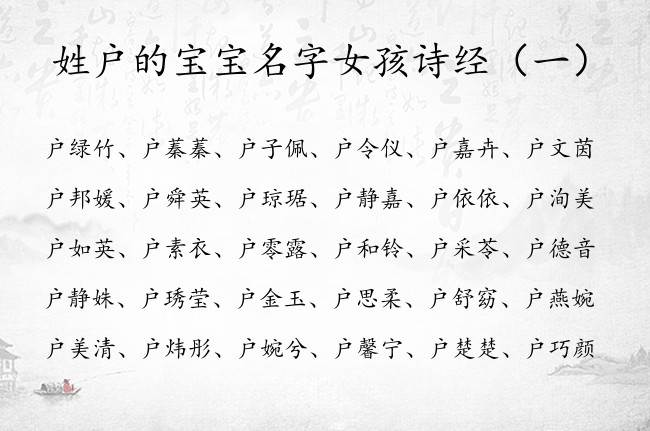 姓户的宝宝名字女孩诗经（一）
户绿竹、户蓁蓁、户子佩、户令仪、户嘉卉、户文茵
户邦媛、户舜英、户琼琚、户静嘉、户依依、户洵美
户如英、户素衣、户零露、户和铃、户采苓、户德音
户静姝、户琇莹、户金玉、户思柔、户舒窈、户燕婉
户美清、户炜彤、户婉兮、户馨宁、户楚楚、户巧颜